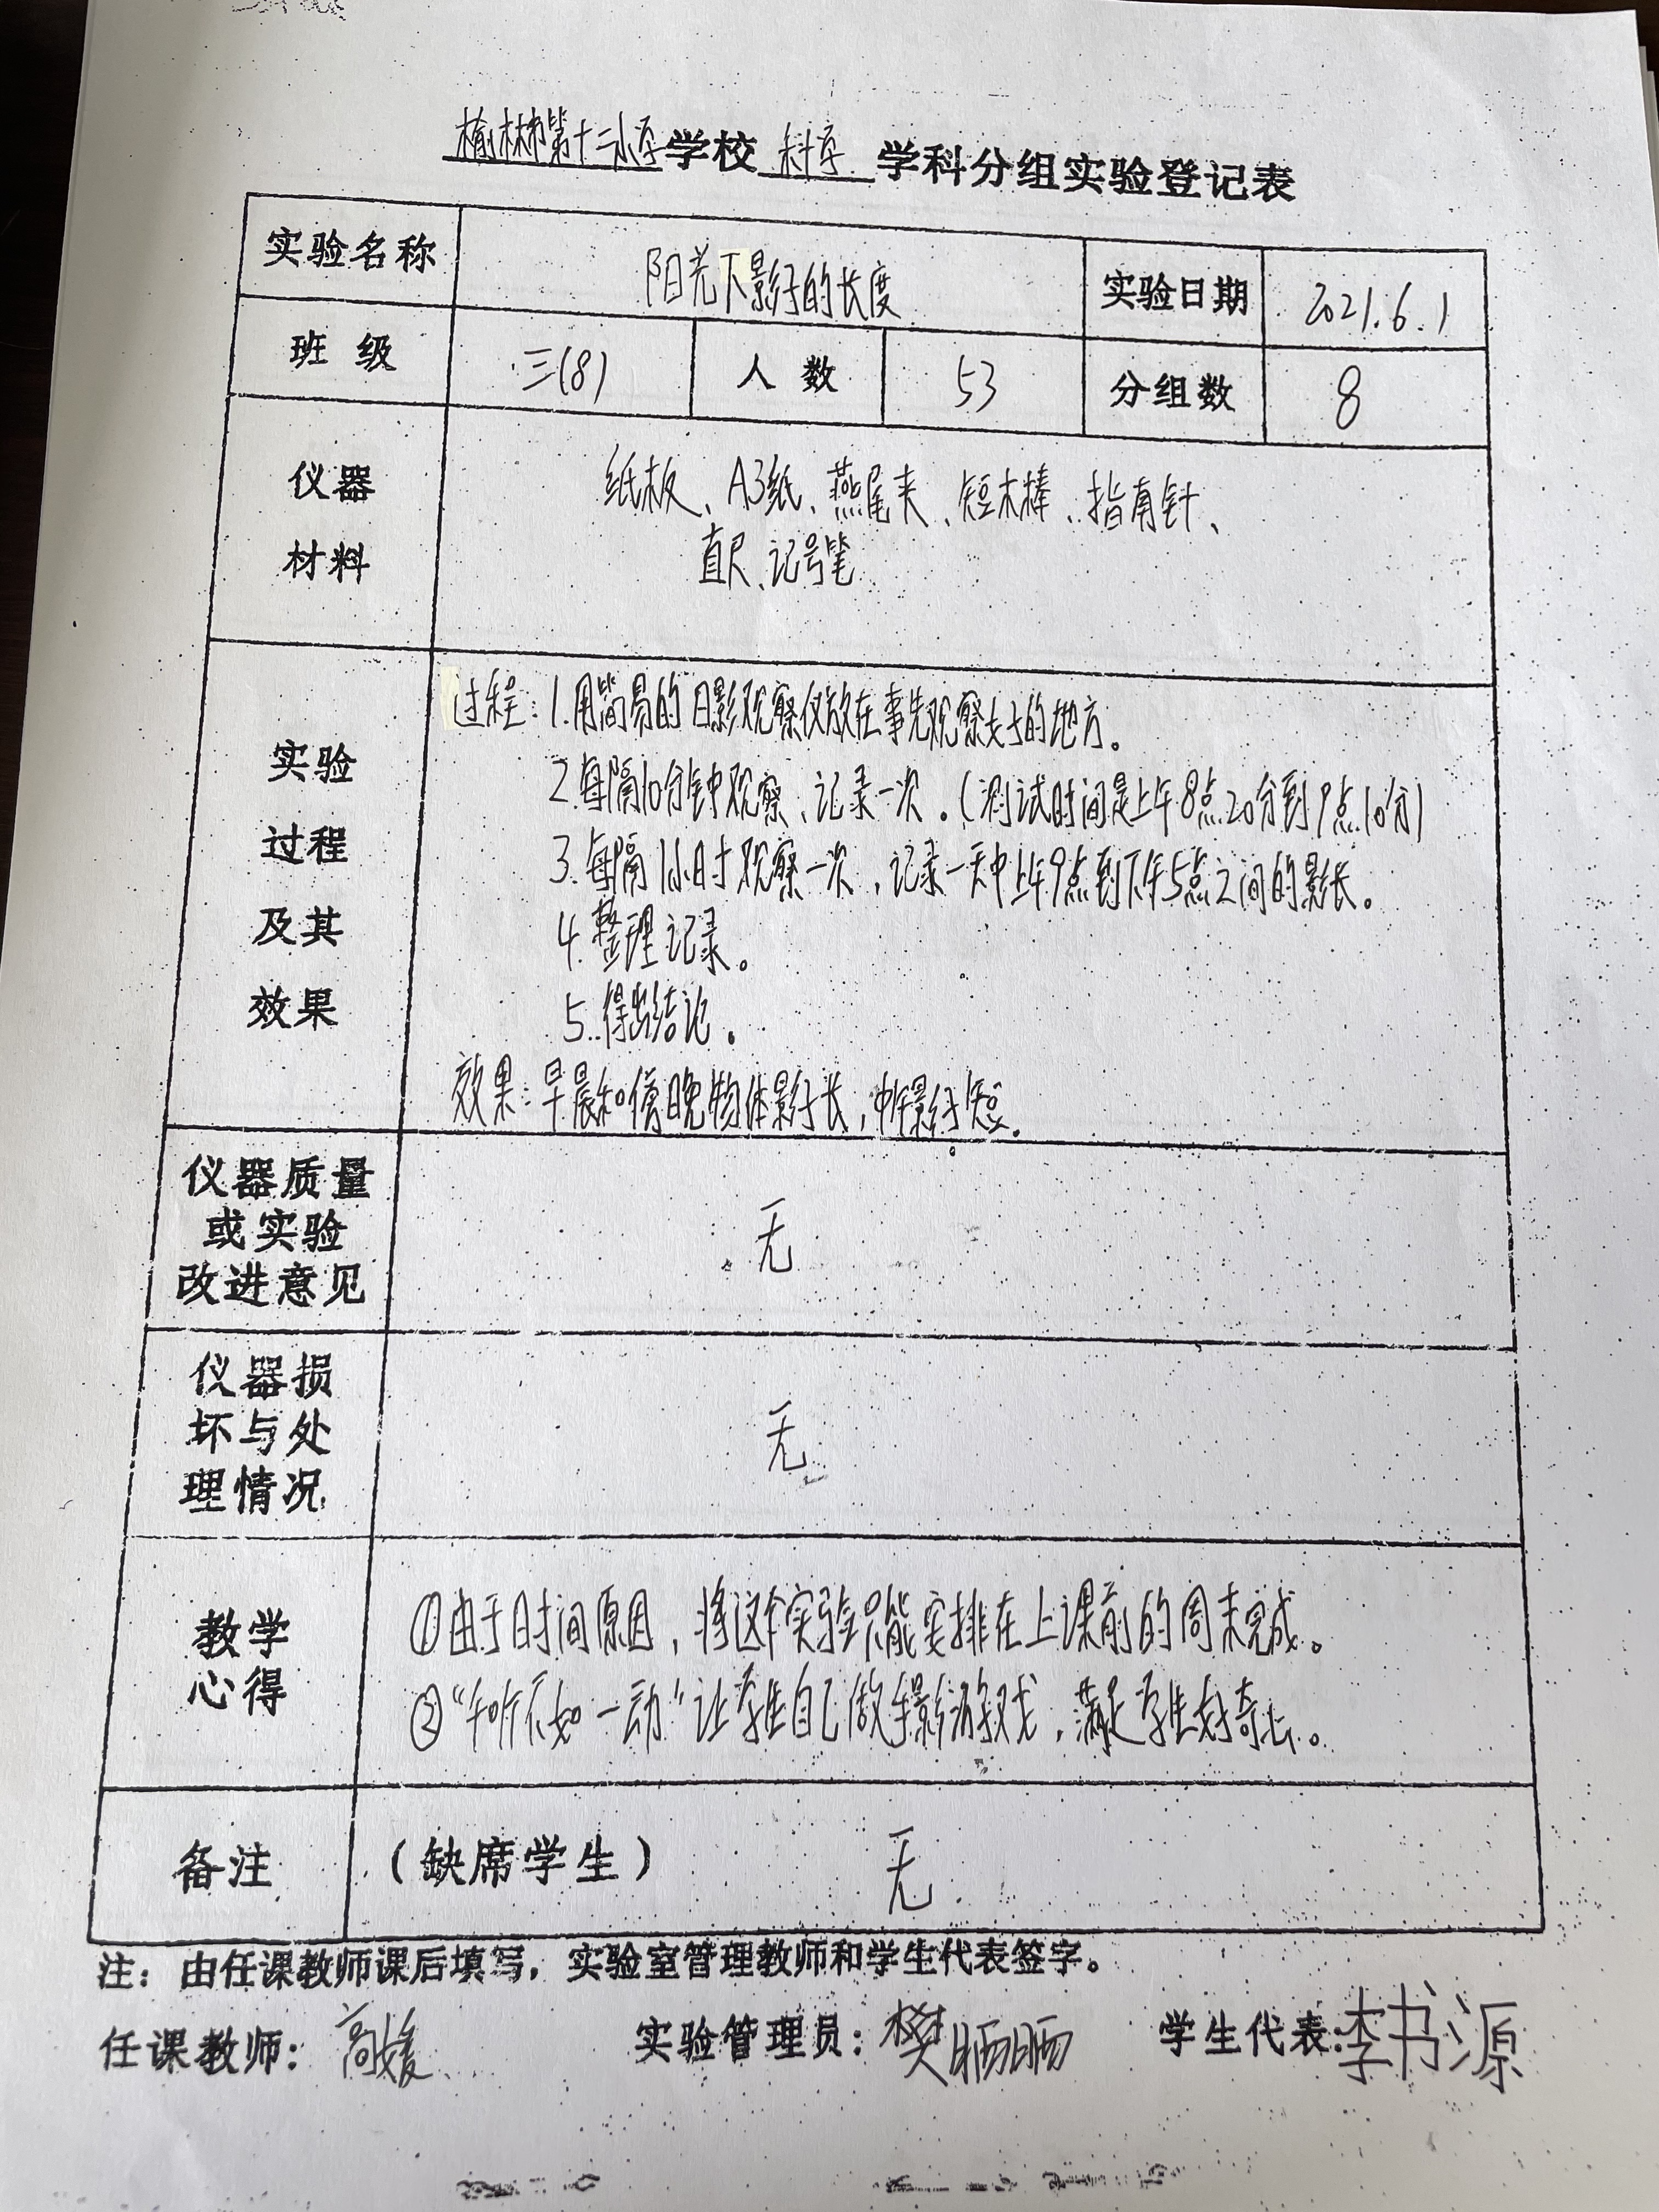 榆林市第十二小学学校 科学 学科分组实验登记表
实验名称 阳光下影子的长度 实验日期 2021.6.1
班 级 三(8) 人 数 53 分组数 8
仪器
材料
纸板、A3纸、燕尾夹、短木棒、指南针、
直尺、记号笔
实验
过程
及其
效果
过程:1.用简易的日影观察仪放在事先观察好的地方。
2.每隔10分钟观察、记录一次。(测试时间是上午8点20分到9点10分)
3.每隔1小时观察一次,记录一天中上午9点到下午5点之间的影长。
4.整理记录。
5.得出结论。
效果:早晨和傍晚物体影子长,中午影子短。
仪器质量
或实验
改进意见
无
仪器损
坏与处
理情况
无
教学
心得
①由于时间原因,将这个实验只能安排在上课前的周末完成。
②“千听不如一动”让学生自己做手影游戏,满足学生好奇心。
备注 (缺席学生) 无
注:由任课教师课后填写,实验室管理教师和学生代表签字。
任课教师:高媛 实验管理员:樊晒晒 学生代表:李书源